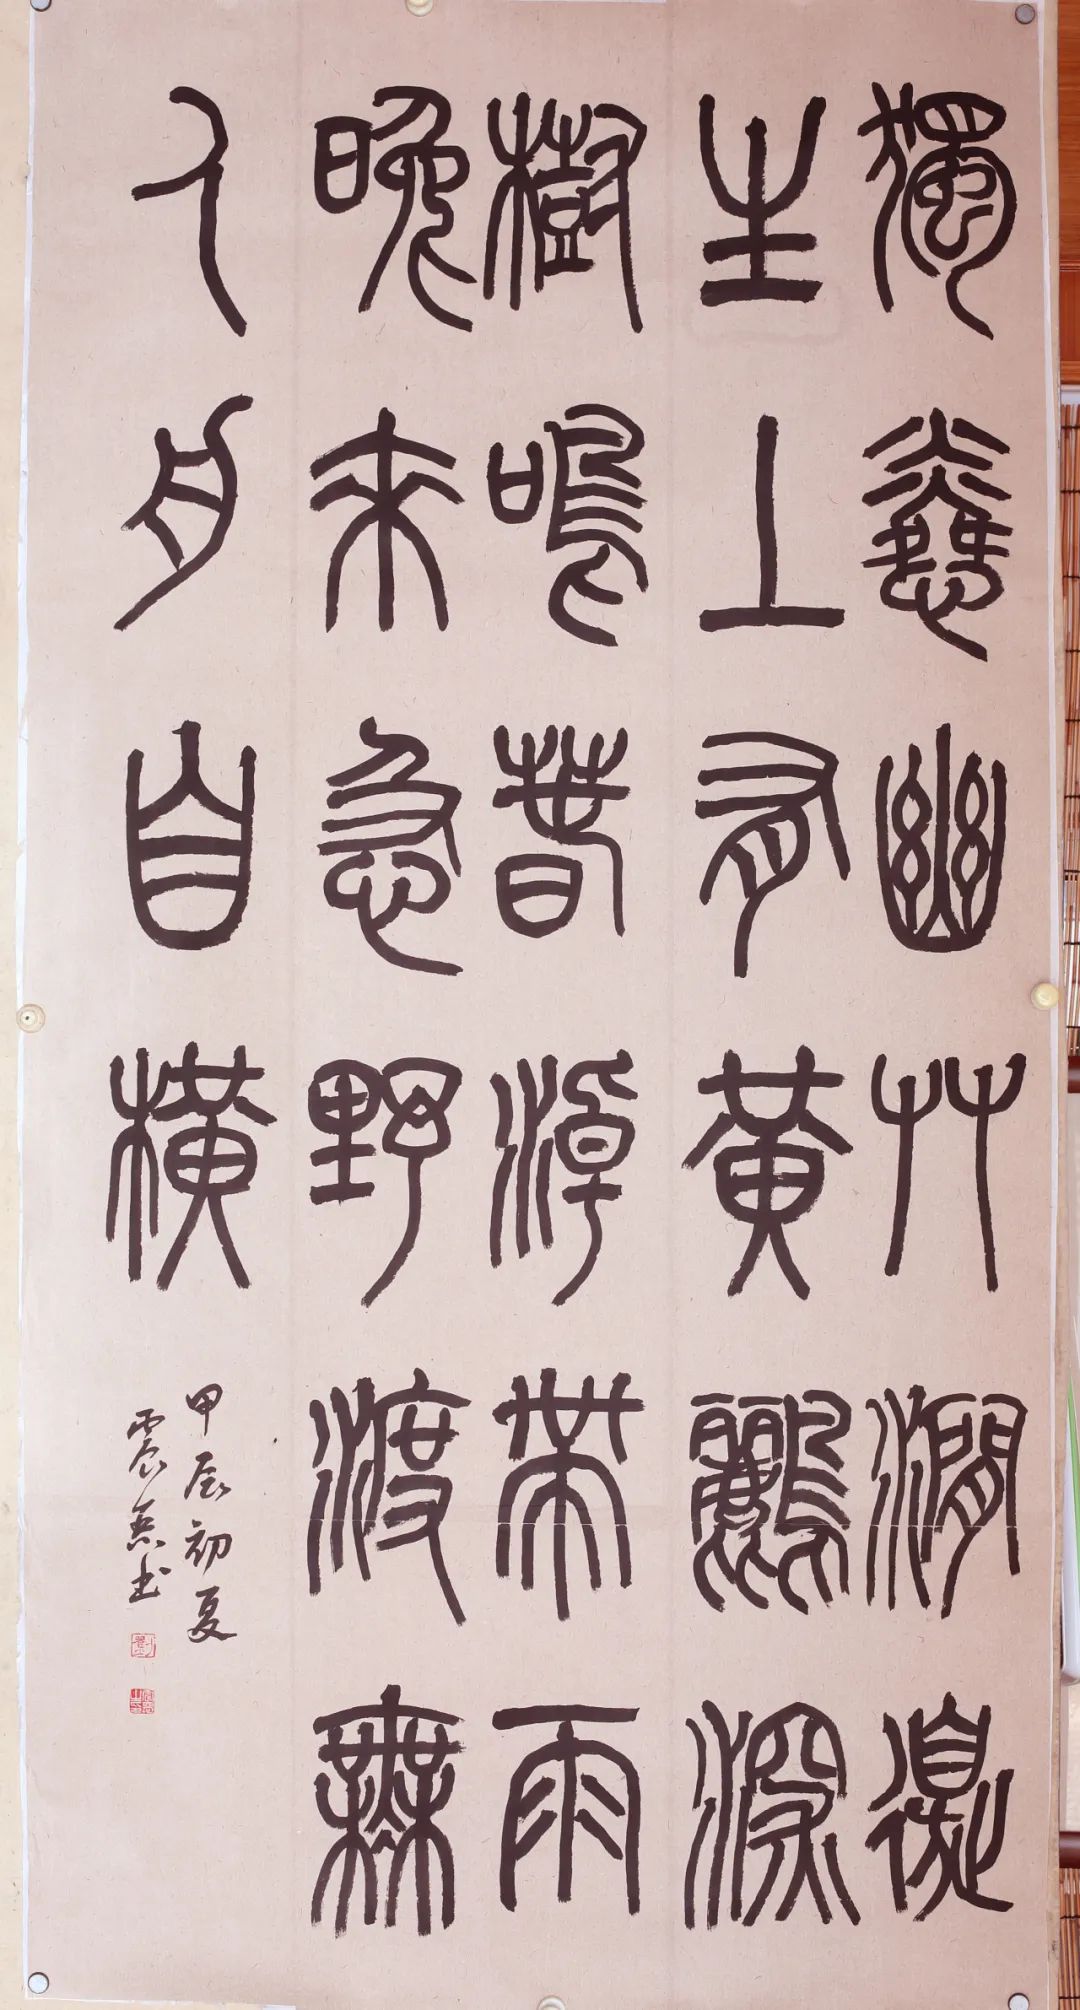 獨憐幽艸澗邊
生上有黃鸝深
樹鳴春潮帶雨
晚來急野渡無
人舟自橫
甲辰初夏
震书